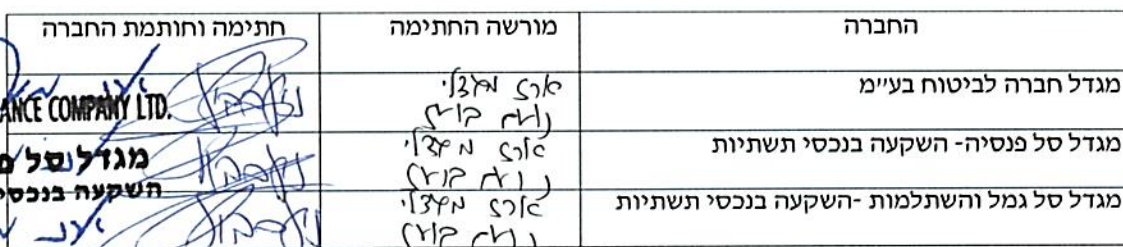 החברה מורשה החתימה חתימה וחותמת החברה
מגדל חברה לביטוח בע״מ ארז מגדלי
נועם
ANCE COMPANY LTD.
מגדל סל פנסיה- השקעה בנכסי תשתיות ארז מגדלי
נועם
מגדל סל
השקעה בנכסי
מגדל סל גמל והשתלמות -השקעה בנכסי תשתיות ארז מגדלי
נועם